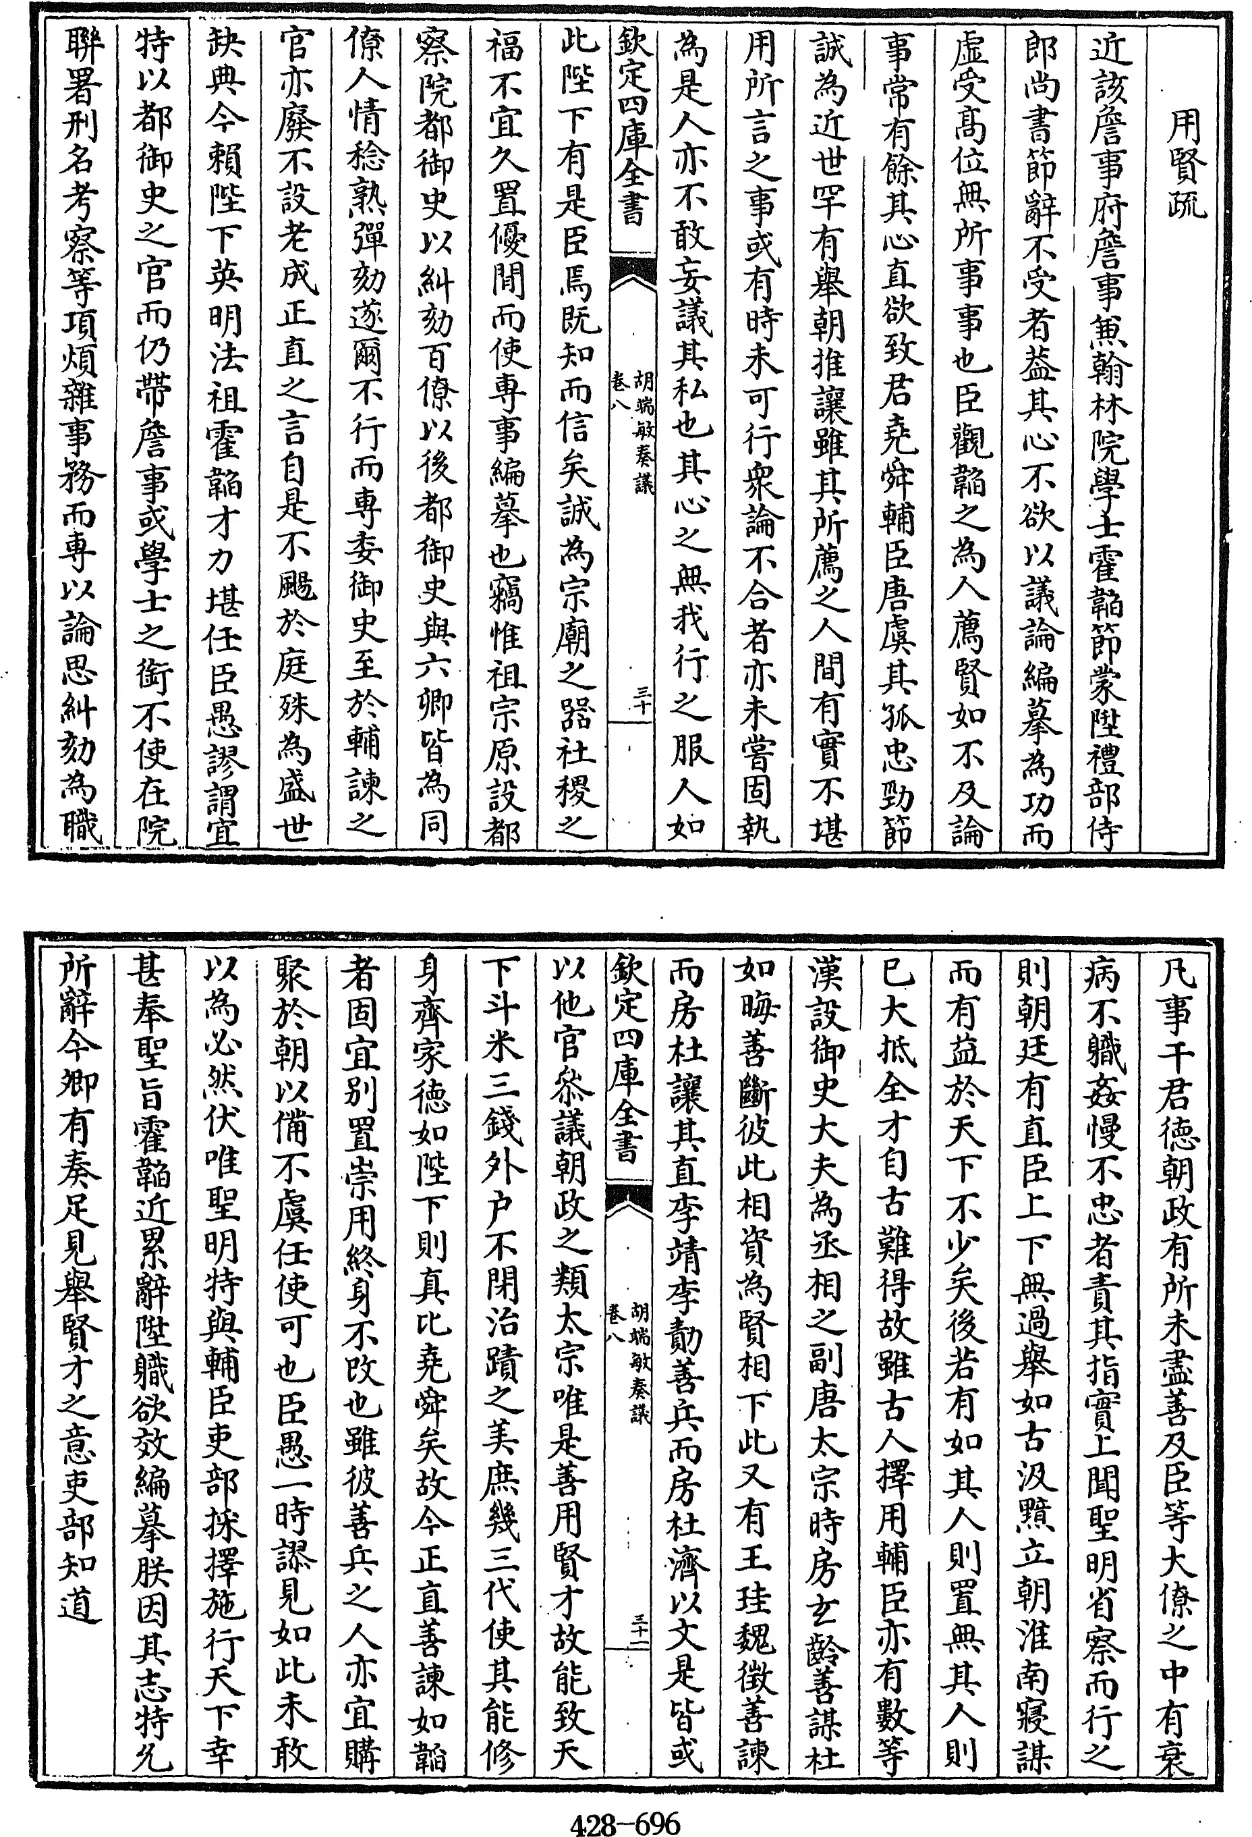 用賢疏
近該詹事府詹事兼翰林院學士霍韜節蒙陞禮部侍
郎尚書節辭不受者葢其心不欲以議論編摹為功而
虛受髙位無所事事也臣觀韜之為人薦賢如不及論
事常有餘其心直欲致君堯舜輔臣唐虞其孤忠勁節
誠為近世罕有舉朝推讓雖其所薦之人間有實不堪
用所言之事或有時未可行衆論不合者亦未嘗固執
為是人亦不敢妄議其私也其心之無我行之服人如
欽定四庫全書
胡端敏奏議
卷八
三十
此陛下有是臣焉既知而信矣誠為宗廟之器社稷之
福不宜久置優閒而使專事編摹也竊惟祖宗原設都
察院都御史以糾劾百僚以後都御史與六卿皆為同
僚人情稔熟彈劾遂爾不行而專委御史至於輔諫之
官亦廢不設老成正直之言自是不颺於庭殊為盛世
缺典今賴陛下英明法祖霍韜才力堪任臣愚謬謂宜
特以都御史之官而仍帶詹事或學士之銜不使在院
聯署刑名考察等項煩雜事務而専以論思糾劾為職
凡事干君徳朝政有所未盡善及臣等大僚之中有衰
病不職姦慢不忠者責其指實上聞聖明省察而行之
則朝廷有直臣上下無過舉如古汲黯立朝淮南寢謀
而有益於天下不少矣後若有如其人則置無其人則
已大抵全才自古難得故雖古人擇用輔臣亦有數等
漢設御史大夫為丞相之副唐太宗時房玄齡善謀杜
如晦善斷彼此相資為賢相下此又有王珪魏徴善諫
而房杜讓其直李靖李勣善兵而房杜濟以文是皆或
欽定四庫全書
胡端敏奏議
卷八
三十一
以他官叅議朝政之類太宗唯是善用賢才故能致天
下斗米三錢外户不閉治蹟之美庶幾三代使其能修
身齊家徳如陛下則真比堯舜矣故今正直善諫如韜
者固宜别置崇用終身不改也雖彼善兵之人亦宜購
聚於朝以備不虞任使可也臣愚一時謬見如此未敢
以為必然伏唯聖明特與輔臣吏部採擇施行天下幸
甚奉聖旨霍韜近累辭陞職欲效編摹朕因其志特允
所辭今卿有奏足見舉賢才之意吏部知道
428-696